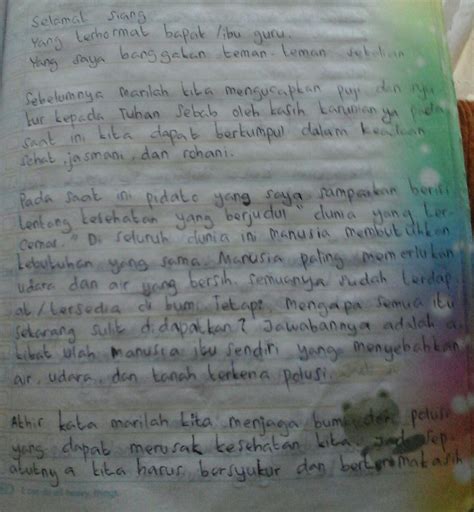 Selamat siang
Yang terhormat bapak /ibu guru.
Yang saya banggakan teman-teman sekalian
Sebelumnya marilah kita mengucapkan puji dan syu
kur kepada Tuhan sebab oleh kasih karunianya pada
saat ini kita dapat berkumpul dalam keadaan
sehat, jasmani, dan rohani.
Pada saat ini pidato yang saya sampaikan berisi
tentang kesehatan yang berjudul "dunia yang ter-
cemar." Di seluruh dunia ini manusia membutuhkan
kebutuhan yang sama. Manusia paling memerlukan
udara dan air yang bersih. semuanya sudah terdap
at/tersedia di bumi. Tetapi mengapa semua itu
sekarang sulit didapatkan? Jawabannya adalah a
kibat ulah manusia itu sendiri yang menyebabkan
air, udara, dan tanah terkena polusi.
Akhir kata marilah kita menjaga bumi dari polusi
yang dapat merusak kesehatan kita. sep
atutnya kita harus bersyukur dan berterimakasih
I can do all